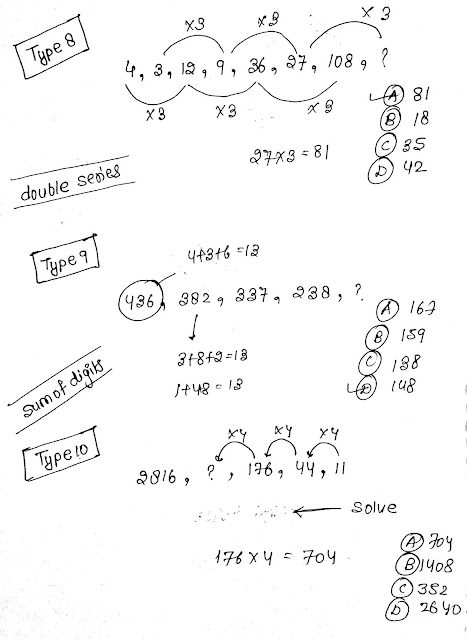 Type 8
×3 ×3 ×3
4, 3, 12, 9, 36, 27, 108, ?
×3 ×3 ×3
27×3 = 81
A 81
B 18
C 35
D 42
double series
Type 9
4+3+6 = 13
436, 382, 337, 238, ?
3+8+2=13
1+48 = 13
A 167
B 159
C 138
D 148
sum of digits
Type 10
×4 ×4 ×4
2816, ?, 176, 44, 11
Solve
176 × 4 = 704
A 704
B 1408
C 352
D 2640